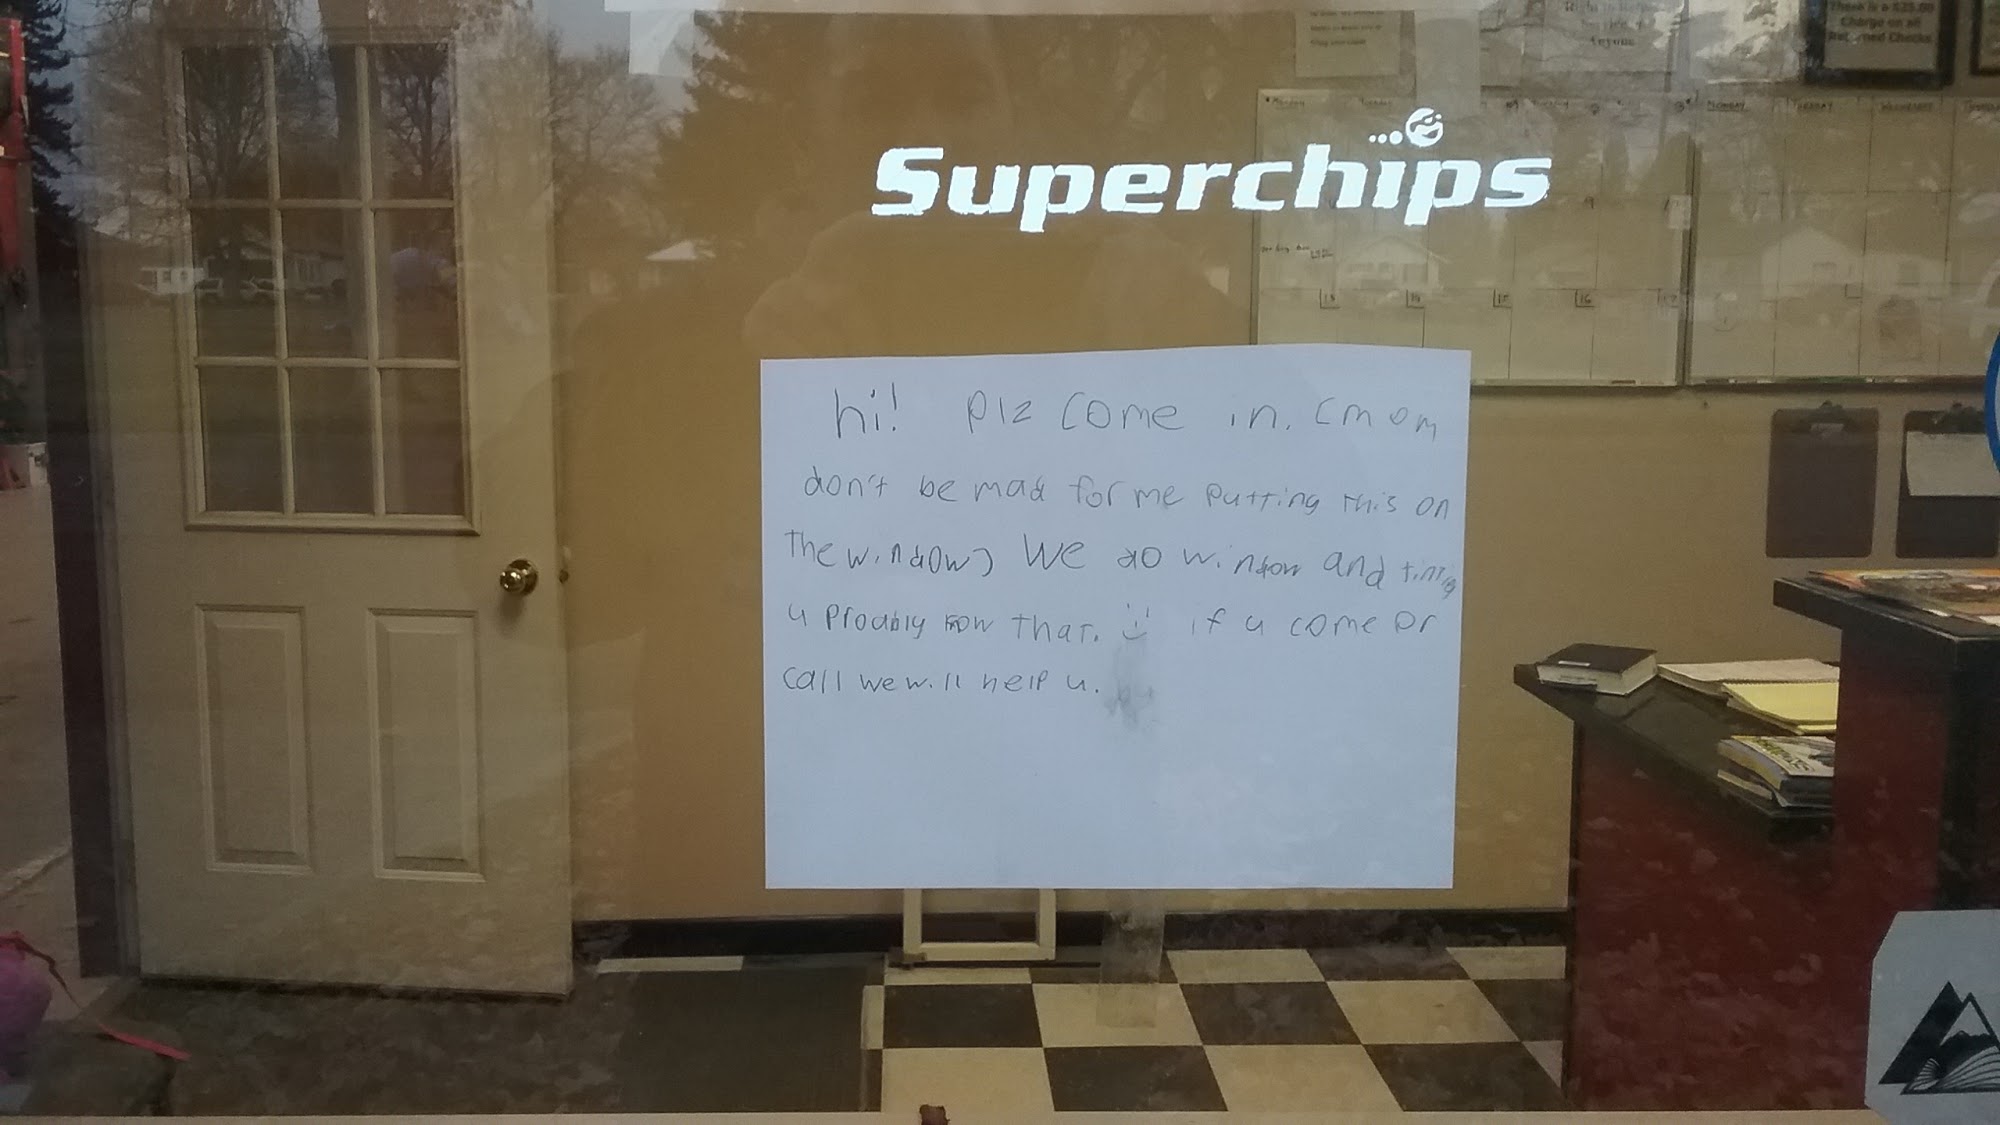 There is a $25.00
Charge on all
Returned Checks
Superchips
MONDAY TUESDAY WEDNESDAY
15 16 17
hi! plz come in. (mom
don't be mad for me putting this on
the window) We do window and tinting
u proably know that. :) if u come or
call we will help u.